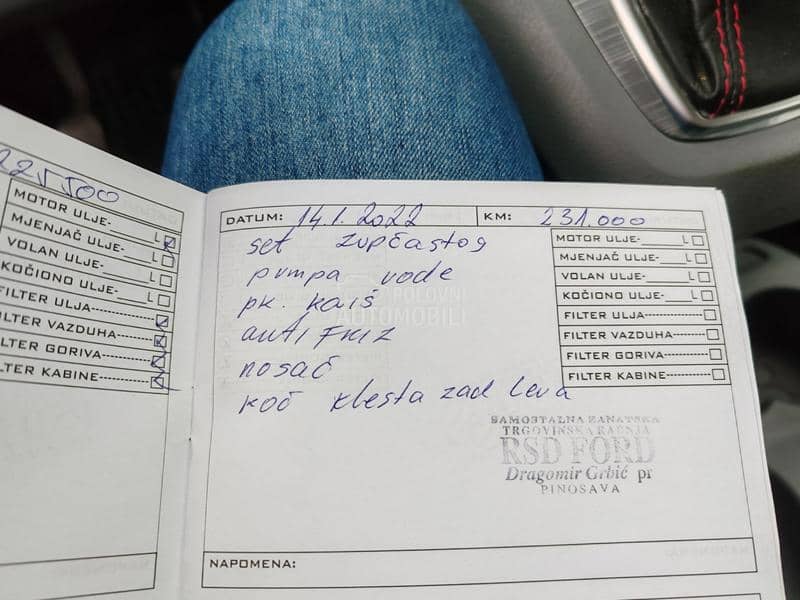 225.500
MOTOR ULJE- L
MJENJAČ ULJE- L
VOLAN ULJE- L
KOČIONO ULJE- L
FILTER ULJA
ILTER VAZDUHA
ILTER GORIVA
LTER KABINE
DATUM: 14.1.2022 KM: 231.000
set zupčastog
pumpa vode
pk. kaiš
antifriz
nosač
koč klesta zad leva
MOTOR ULJE- L
MJENJAČ ULJE- L
VOLAN ULJE- L
KOČIONO ULJE- L
FILTER ULJA
FILTER VAZDUHA
FILTER GORIVA
FILTER KABINE
POLOVNI
AUTOMOBILI
SAMOSTALNA ZANATSKA
TRGOVINSKA RADNJA
RSD FORD
Dragomir Grbić pr
PINOSAVA
NAPOMENA: